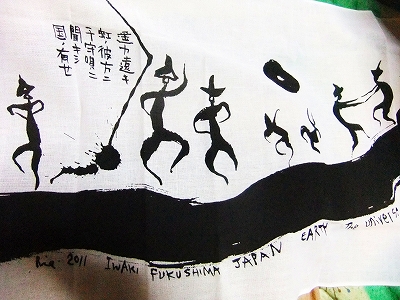 遥カ遠キ
虹ノ彼方ニ
子守唄ニ
聞キシ
国ノ有せ
2011 IWAKI FUKUSHIMA JAPAN EARTH The univers